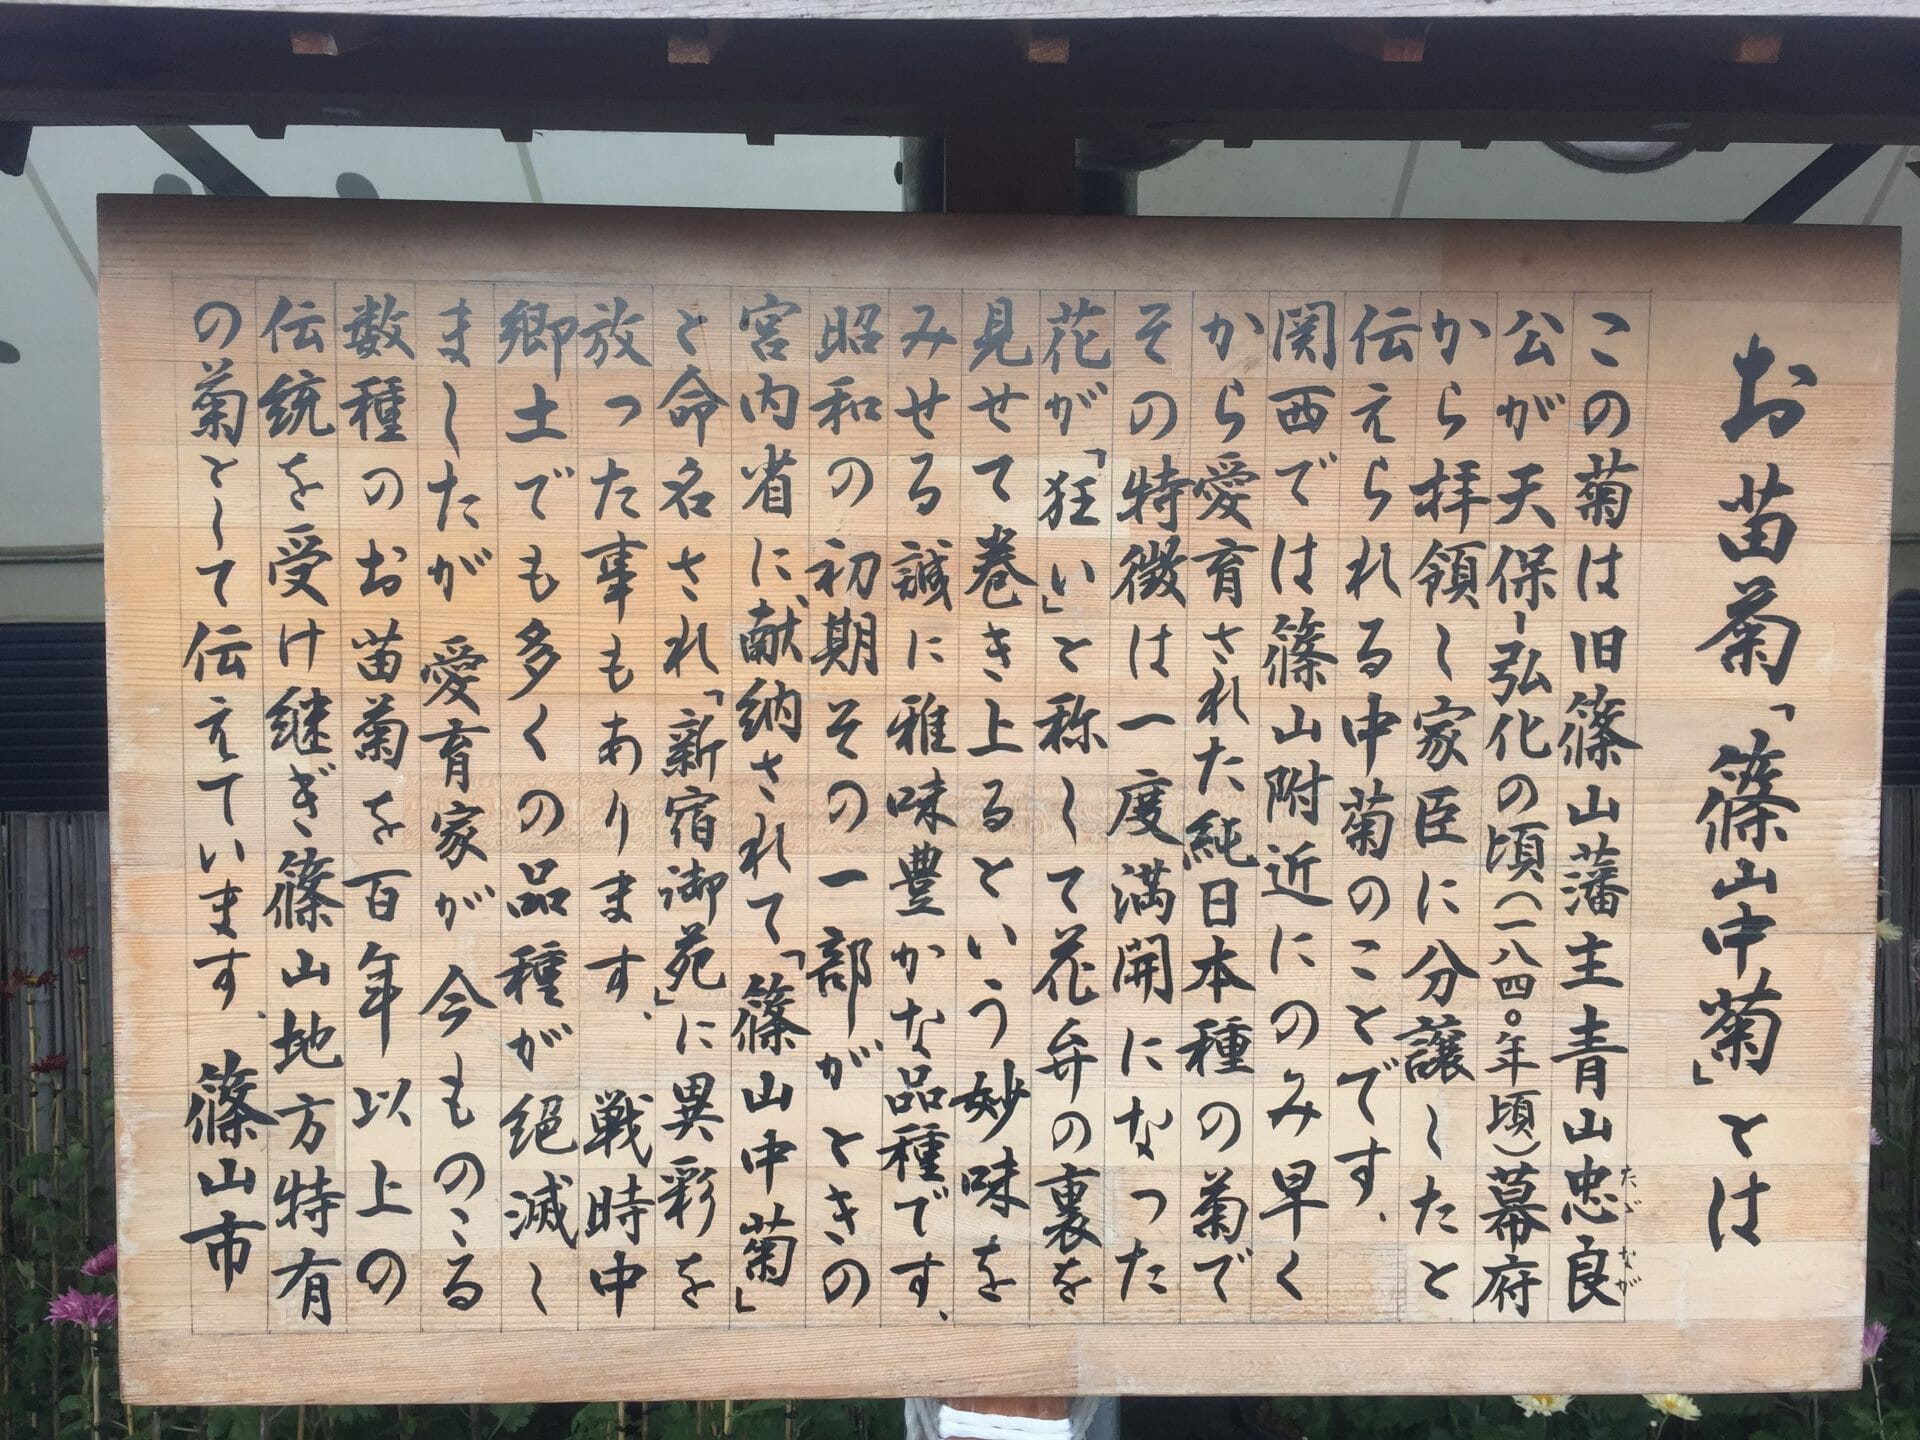 お苗菊「篠山中菊」とは
この菊は旧篠山藩主青山忠良
ただ なが
公が天保-弘化の頃(一八四〇年頃)幕府
から拝領し家臣に分譲したと
伝えられる中菊のことです。
関西では篠山附近にのみ早く
から愛育された純日本種の菊で
その特徴は一度満開になった
花が「狂い」と称して花弁の裏を
見せて巻き上るという妙味を
みせる誠に雅味豊かな品種です。
昭和の初期その一部がときの
宮内省に献納されて「篠山中菊」
と命名され「新宿御苑」に異彩を
放った事もあります。戦時中
郷土でも多くの品種が絶滅し
ましたが愛育家が今ものこる
数種のお苗菊を百年以上の
伝統を受け継ぎ篠山地方特有
の菊として伝えています。篠山市